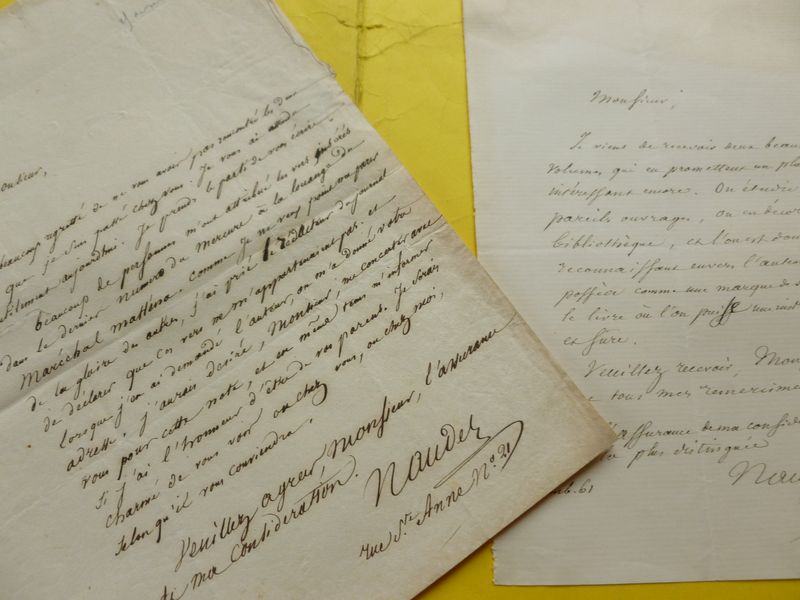 beaucoup regretté de ne vous avoir pas rencontré les deux
que je suis passé chez vous. Je vous ai attendu
inutilement aujourd'hui. Je prends le parti de vous écrire.
beaucoup de personnes m'ont attribué les vers insérés
dans le dernier numéro du mercure à la louange du
maréchal masséna. comme je ne veux point me parer
de la gloire des autres, j'ai prié le rédacteur du journal
de déclarer que ces vers ne m'appartenaient pas. et
lorsque j'en ai demandé l'auteur, on m'a donné votre
adresse. j'aurais désiré, monsieur, me concerter avec
vous pour cette note, et en même tems m'informer
si j'ai l'honneur d'être de vos parens. Je serais
charmé de vous voir ou chez vous, ou chez moi,
selon qu'il vous conviendra.
Veuillez agréer, monsieur, l'assurance
de ma considération.
Naudet
rue Ste Anne No. 21
Monsieur,
Je viens de recevoir deux beaux
volumes, qui en promettent un plus
intéressant encore. On étudie
pareils ouvrages, on en décore
bibliothèque, et l'on est
reconnaissant envers l'auteur
posséder comme une marque de
le livre où l'on puisse

Veuillez recevoir, Mons
tous mes remercimens
l'assurance de ma considér
plus distinguée
Nau
61